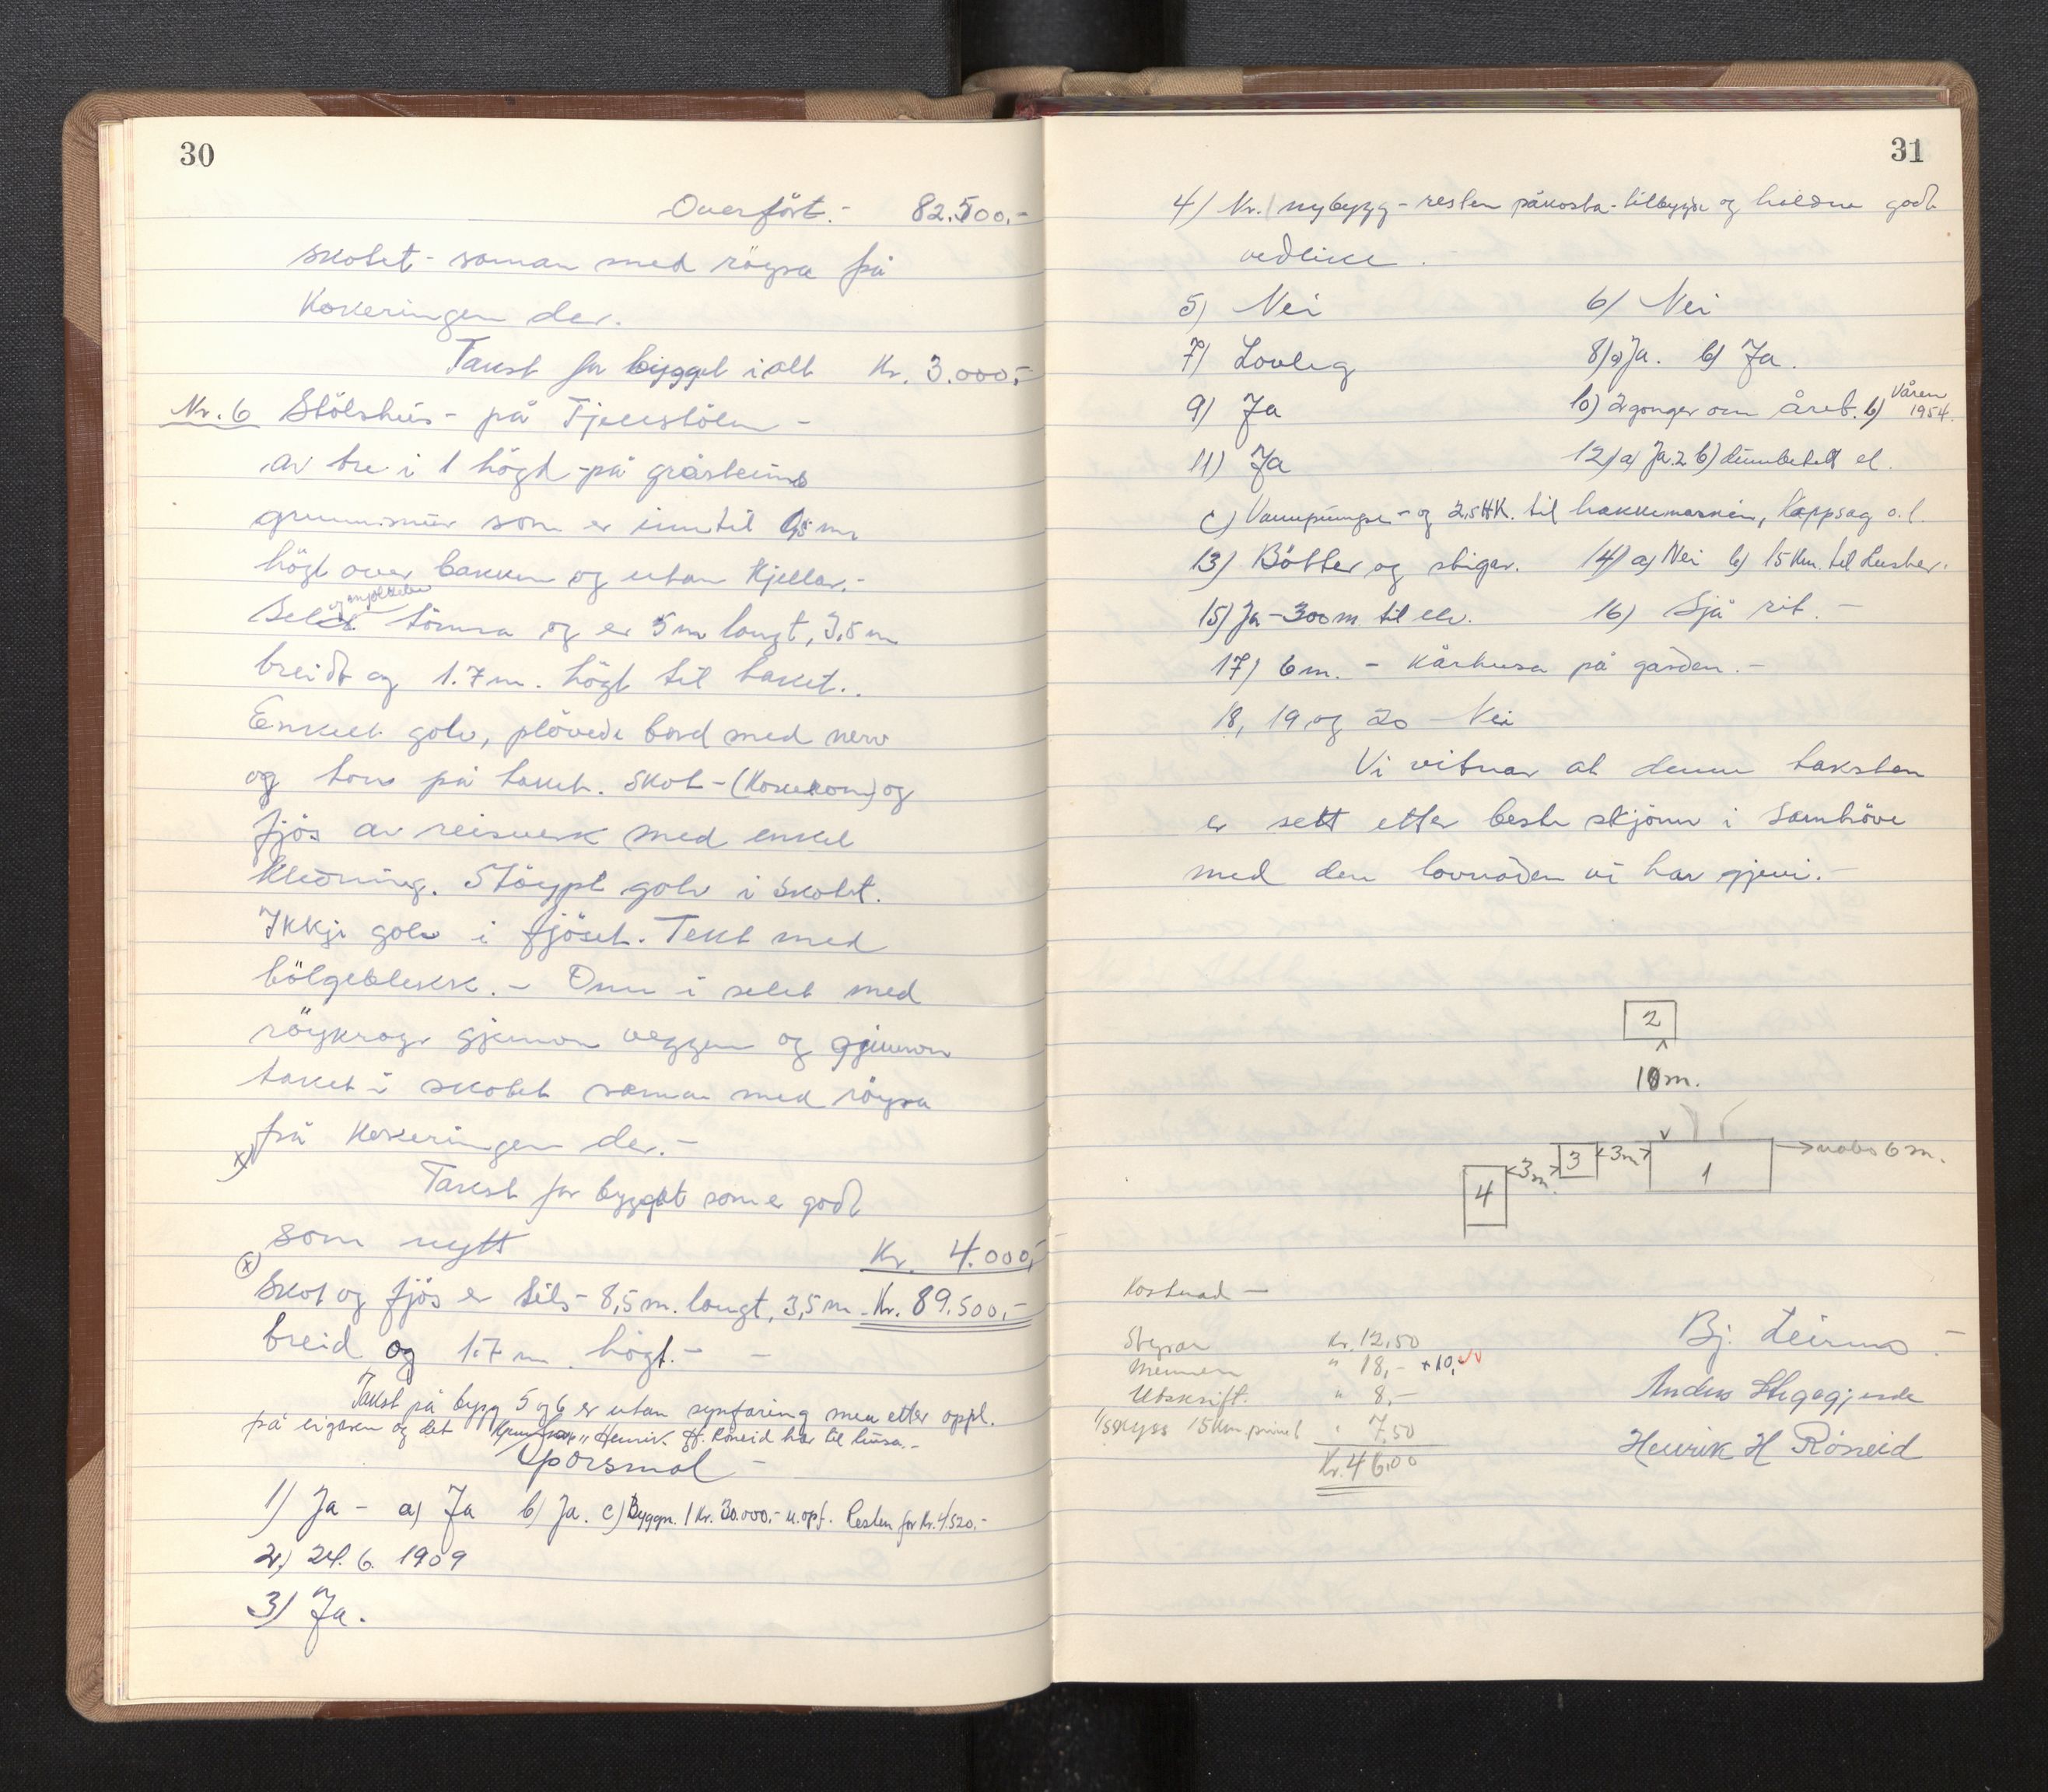 30
Overfört.- 82.500.-
skotet - saman med röysa frå
Kokeringen der.
Takst for bygget i alt Kr. 3.000,-
Nr. 6 Stölshus - på Fjellstölen -
av tre i 1 högd på gråsteins
grunnmur som er inntil 0,5 m
högt over bakken og utan kjellar.-
Selet og mjölkebu tömra og er 5 m langt, 3,5 m
breidt og 1.7 m. högt til taket..
Enkelt golv, plövede bord med never
og torv på taket. Skot - (Kokerom) og
fjös av reisverk med enkel
kledning. Stöypt golv i skotet.
Ikkje golv i fjöset. Tekt med
bölgeblekk. - Omn i selet med
röykrör gjenom veggen og gjennom
taket i skotet saman med röysa
x) frå kokeringen der.-
Takst for bygget som er godt
som nytt Kr. 4.000,-
(x) Skot og fjös er tils - 8,5 m. langt, 3,5 m Kr. 89.500,-
breid og 1.7 m. högt. - -
Takst på bygg 5 og 6 er utan synfaring men etter oppl.
frå eigaren og det kjennskap Henrik H. Röneid har til husa.-
Spörsmål -
1) Ja - a) Ja b) Ja. c) Byggn. 1 Kr. 30.000,- u. opf. Resten for Kr. 4.520,-
2) 24. 6. 1909
3) Ja.
31
4) Nr. 1 nybygg - resten påkosta - tilbygde og haldne godt
vedlike.
5) Nei 6) Nei
7) Lovleg 8) a) Ja. b) Ja.
9) Ja 10) 2 gonger om året. b) Våren 1954.
11) Ja 12) a) Ja. 2 b) dunbehalt el.
c) Vannpumpe - og 2,5 HK. til hakkemaskin, Kappsag o.l.
13) Bötter og stigar. 14) a) Nei b) 15 km. til Luster.
15) Ja - 300 m til elv. 16) Sjå rit. -
17) 6 m. - kårhusa på garden. -
18, 19 og 20 - Nei
Vi vitnar at denne taksten
er sett etter beste skjönn i samhöve
med den lovnaden vi har gjeve. -
2
10 m.
4 3 m. 3 3 m 1 nabo 6 m.
Kostnad -
Styrar Kr. 12,50
Mennen " 18,- + 10,-
Utskrift. " 8,-
Skyss 15 km privat " 7,50
Kr. 46,00
Bj. Leirmo -
Anders Stegegjerde
Henrik H Röneid